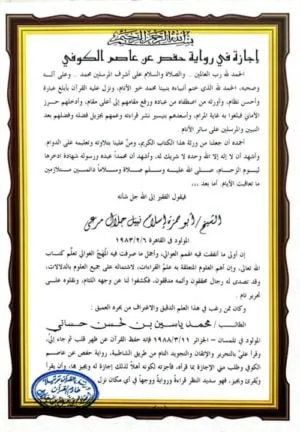 بسم الله الرحمن الرحيم
إجازة في رواية حفص عن عاصم الكوفي
الحمد لله رب العالمين .. والصلاة والسلام على أشرف المرسلين محمد .. وعلى آله
وصحبه، الحمد لله الذي ختم أنبياءه بنبينا محمد خير الأنام، ونزل عليه القرآن بأبلغ عبارة
وأحسن نظام، وأورثه من اصطفاه من عباده ورفع مقامهم إلى أعلى مقام، وأدخلهم حرز
الأماني فبلغوا به غاية المرام، وأسعدهم بتيسير نشر قراءته وعمهم بجزيل فضله وفضلهم بعد
النبيين والمرسلين على سائر الأنام
أحمده أن جعلنا من ورثة هذا الكتاب الكريم، ومنّ علينا بتلاوته وتعليمه على الدوام.
وأشهد أن لا إله إلا الله وحده لا شريك له، وأشهد أن محمداً عبده ورسوله شهادة أدخرها
ليوم الزحام، صلى الله عليه وسلم صلاة وسلاماً دائمين متلازمين
ما تعاقبت الأيام. أما بعد ...
فيقول الفقير إلى الله جل شأنه
الشيخ / أبو حمزة إسلام نبيل جلال مرعي
المولود في القاهرة ١٩٨٣/٢/٦
إن أولى ما اتفقت فيه الهمم العوالي، وأجمل ما صرفت فيه المهج الغوالي علم كتاب
الله تعالى، وإن أهم العلوم المتعلقة به علم القراءات، لاشتماله على جميع العلوم بالدلالات،
وقد تصدى له رجال محققون وأئمة مدققون، فكشفوا لنا عن وجهه اللثام، ونقلوه على
تحرير تام.
وكان ممن رغب في هذا العلم الدقيق والاغتراف من بحره العميق:
الطالب / محمد ياسين بن لحسن حساني
المولود في تلمسان – الجزائر ١٩٨٨/٣/١١ فإنه حفظ القرآن عن ظهر قلب ثم جاء إليّ
وقرأ عليّ بالتحرير والإتقان والتجويد التام من طريق الشاطبية، رواية حفص عن عاصم
الكوفي وطلب مني الإجازة بما قرأه، فأجزته لكونه أهلاً لذلك إجازة له ويجيز بها، وأن يقرأ
ويُقرئ ويجيز، فهو سديد النظر قراءةً وروايةً ووجهاً في أي مكان نزل